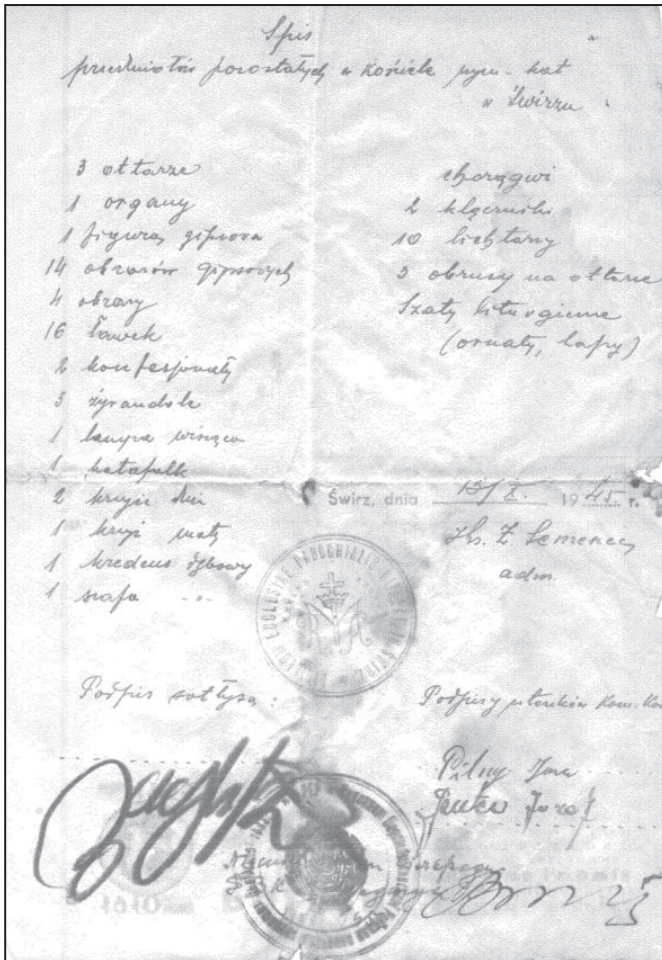 Spis
przedmiotów pozostałych w kościele rzym. kat
w Świrzu
3 ołtarze
1 organy
1 figura gipsowa
14 obrazów gipsowych
4 obrazy
16 ławek
2 konfesjonały
3 żyrandole
1 lampa wisząca
1 katafalk
2 krzyże
1 krzyż mały
1 kredens dębowy
1 szafa
chorągwi
2 klęczniki
10 lichtarzy
3 obrusy na ołtarze
Szaty liturgiczne
(ornaty, kapy)
Świrz, dnia 15/X. 1945. r.
Ks. Z
adm.
Podpis sołtysa.
Podpisy członków Kom. Koś
Pilny Jan
Józef